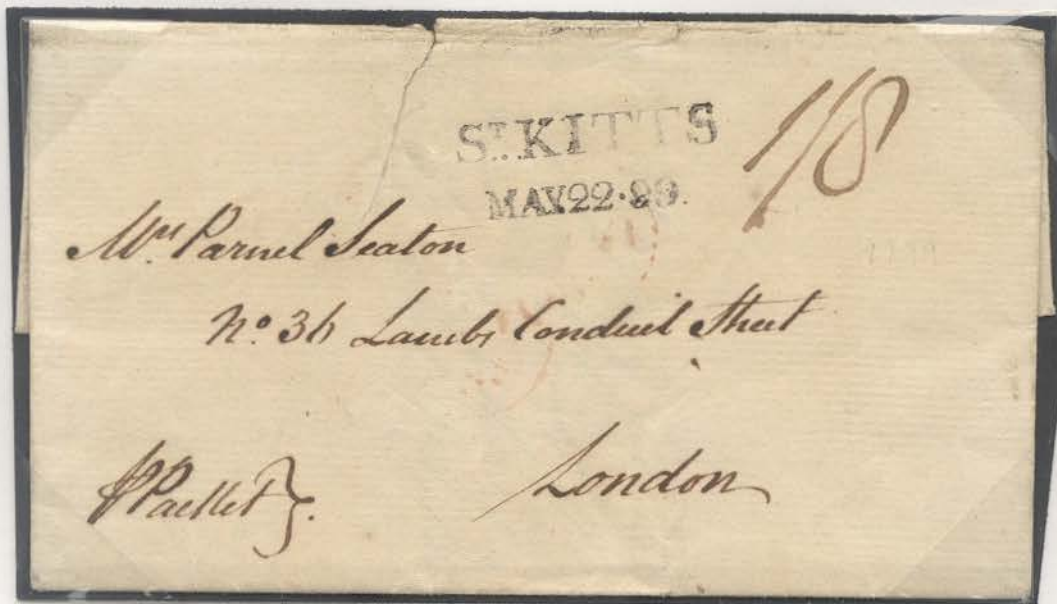 ST. KITTS
MAY 22·99.
1/8
Mrs. Parnel Seaton
No. 36 Lambs Conduit Street
London
P Packet